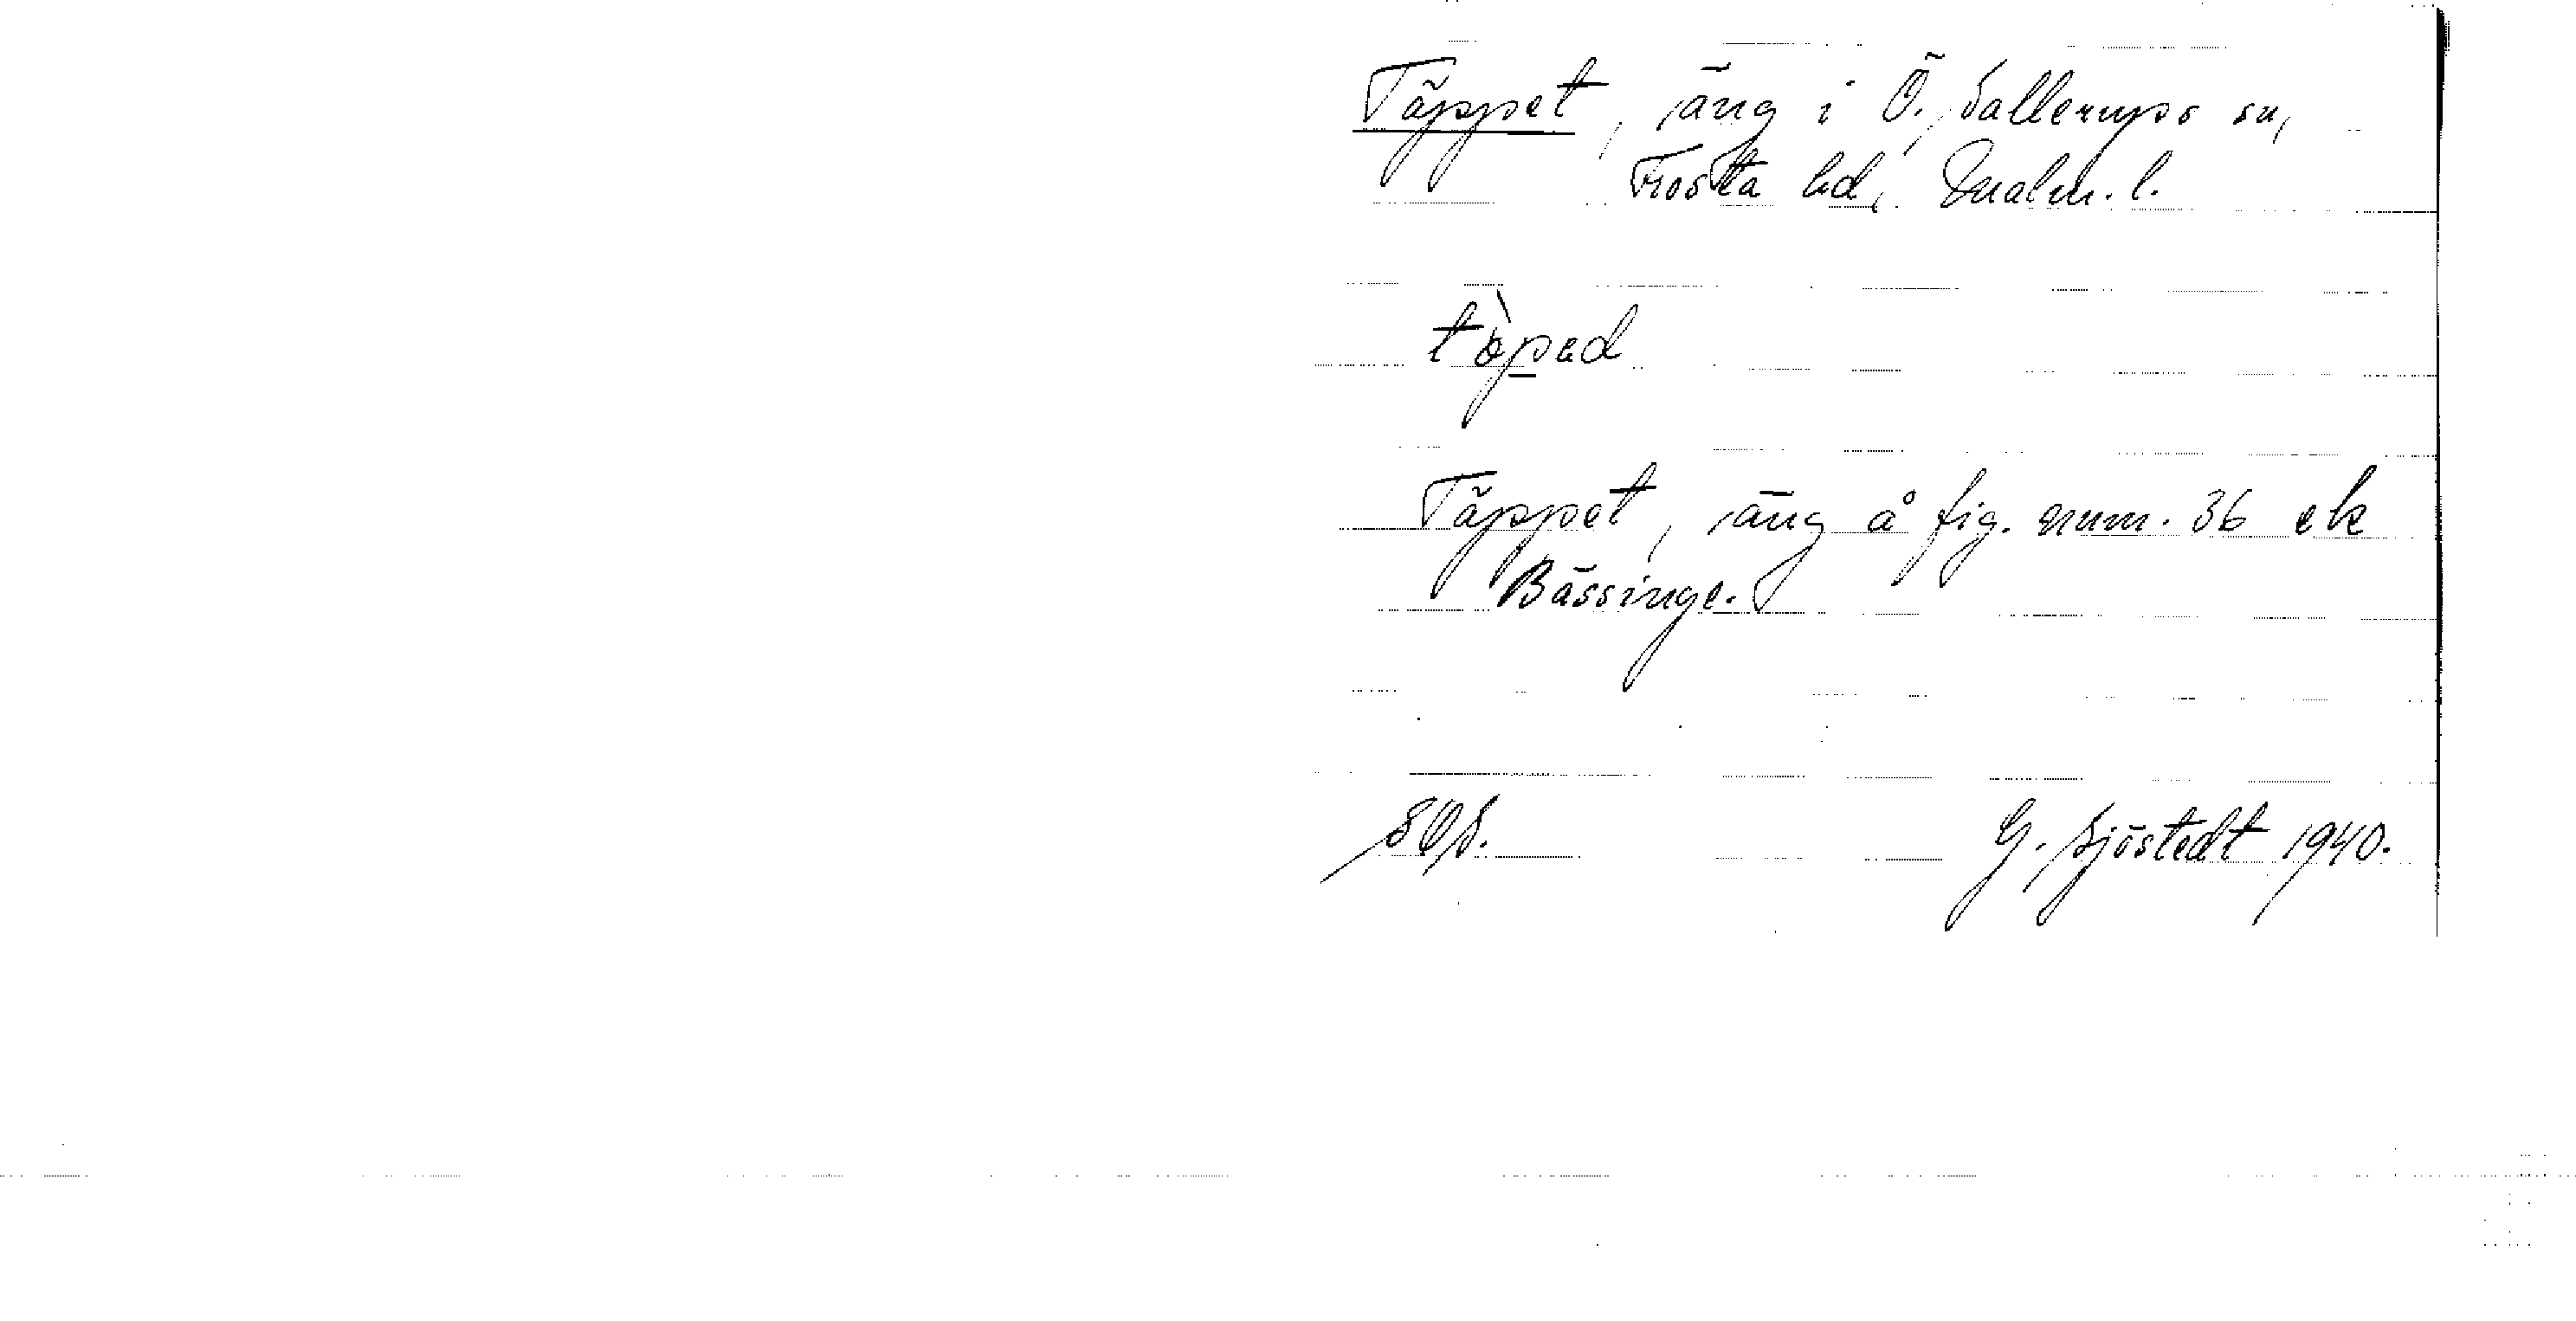 Täppet, äng i Ö. Sallerups sn,
Frosta hd, Malm. l.
tòped
Täppet, äng å fig. num. 36 ek
Bässinge.
G. Sjöstedt 1940.